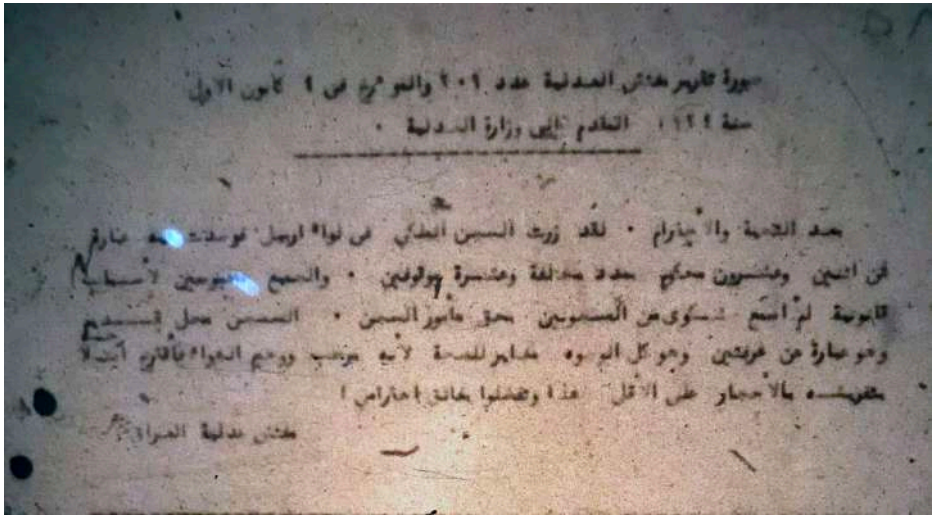 صورة تقرير مفتش العدلية عدد ٢٠٩ والمؤرخ في ٩ كانون الاول
سنة ١٩٢٩ المقدم الى وزارة العدلية ٠
بعد التحية والاحترام ٠ لقد زرت السجن الملكي في لواء اربيل فوجدت عبارة
عن اثنين وعشرون محكوم بعدد مختلفة وعشرة موقوفين ٠ والجميع لأسباب
قانونية لم اسمع شكوى من المسجونين بحق مأمور السجن ٠ السجن محل
وهو عبارة عن غرفتين وهو كل الوجوه مغاير للصحة لأنه مرطب ووخيم الهواء
بالأحجار على الاقل هذا وتفضلوا بفائق احترامي
مفتش عدلية العراق